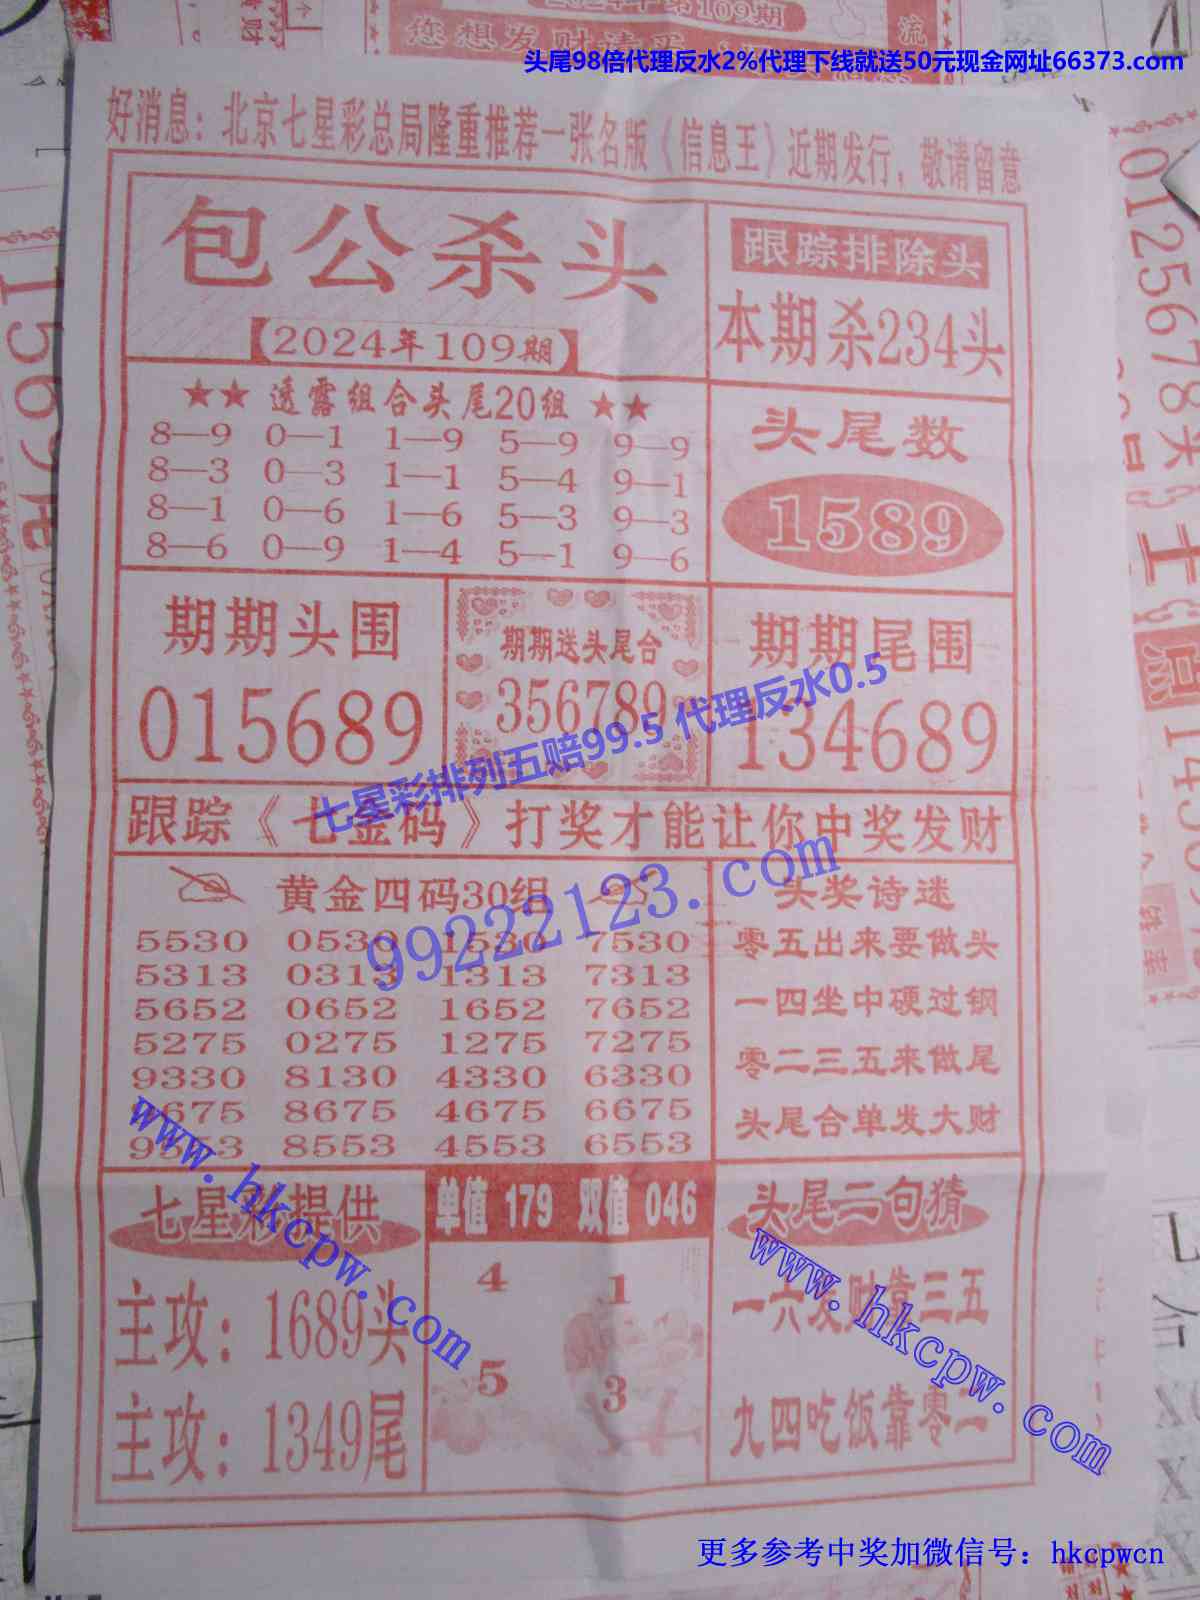 2024年第109期
您想发财请买
流
头尾98倍代理反水2%代理下线就送50元现金网址66373.com
好消息：北京七星彩总局隆重推荐一张名版《信息王》近期发行，敬请留意
包公杀头
【2024年109期】
跟踪排除头
本期杀234头
★★ 透露组合头尾20组 ★★
8—9 0—1 1—9 5—9 9—9
8—3 0—3 1—1 5—4 9—1
8—1 0—6 1—6 5—3 9—3
8—6 0—9 1—4 5—1 9—6
头尾数
1589
期期头围
015689
期期送头尾合
356789
期期尾围
134689
七星彩排列五赔99.5 代理反水0.5
跟踪《七金码》打奖才能让你中奖发财
99222123.com
黄金四码30组
5530 0530 1530 7530
5313 0313 1313 7313
5652 0652 1652 7652
5275 0275 1275 7275
9330 8130 4330 6330
9675 8675 4675 6675
9553 8553 4553 6553
头奖诗迷
零五出来要做头
一四坐中硬过钢
零二三五来做尾
头尾合单发大财
www.hkcpw.com
七星彩提供
主攻：1689头
主攻：1349尾
单值 179 双值 046
4 1
5 3
头尾二句猜
一六发财靠三五
九四吃饭靠零二
www.hkcpw.com
更多参考中奖加微信号：hkcpwcn
1569尾
0125678头